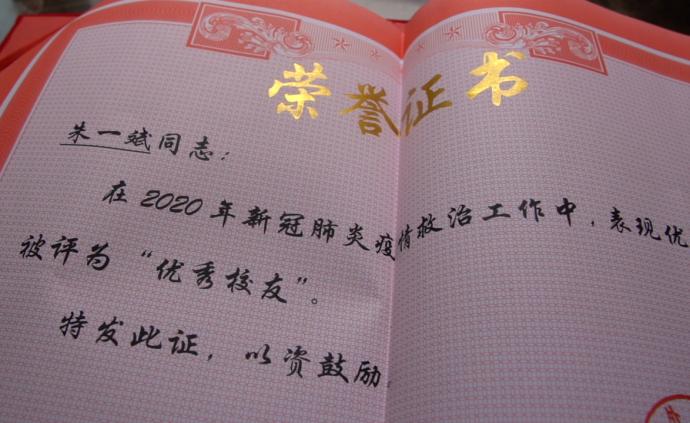 荣誉证书
朱一斌同志:
在2020年新冠肺炎疫情救治工作中,表现优
被评为“优秀校友”。
特发此证,以资鼓励